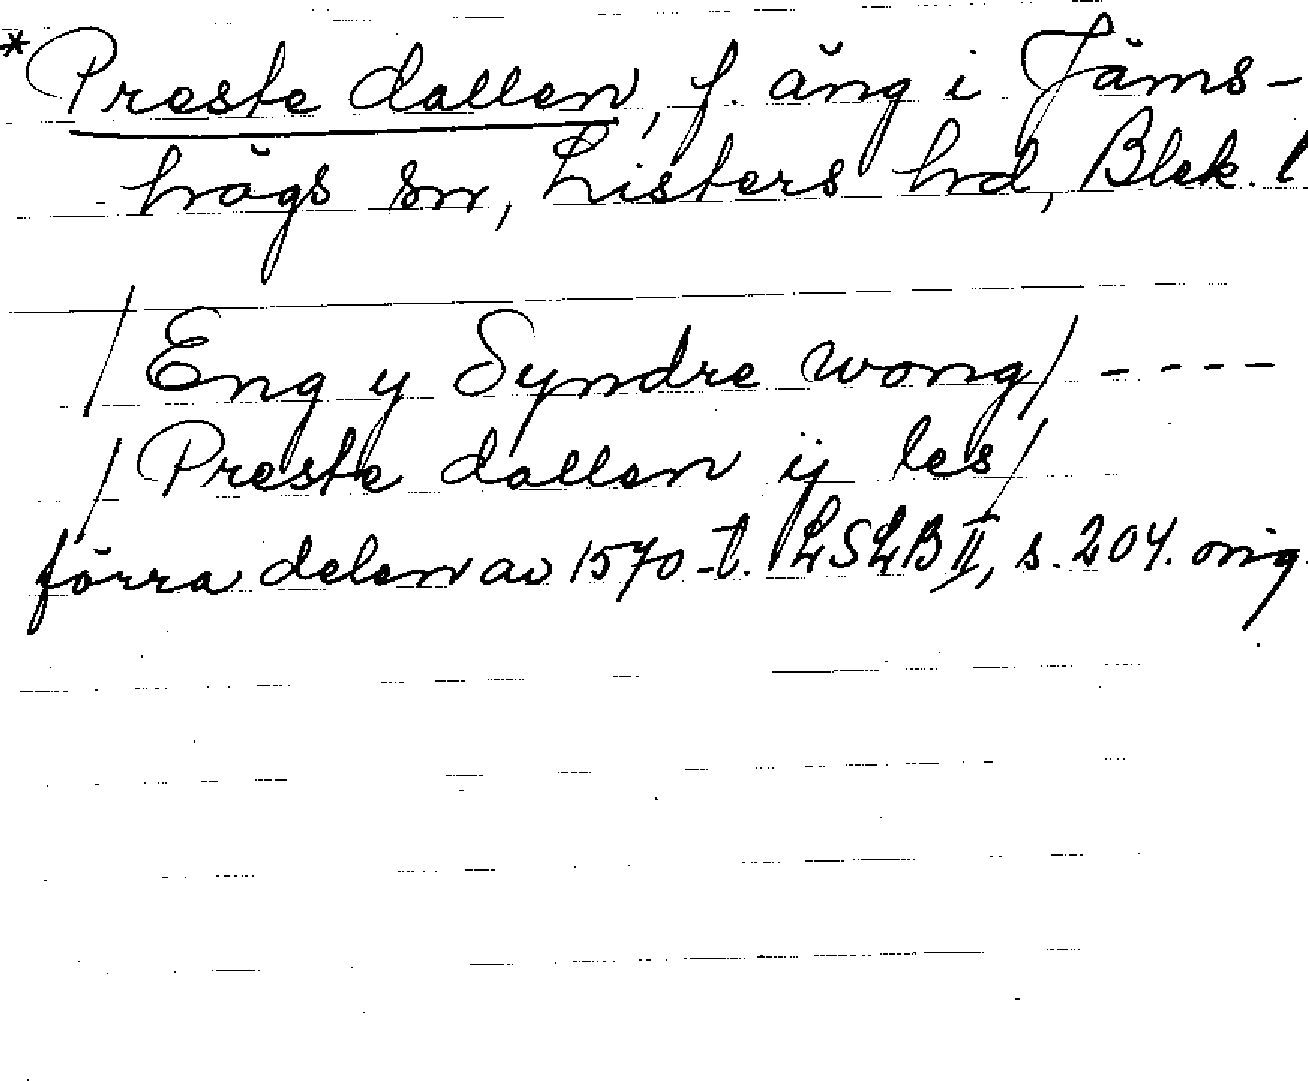 *Preste dallen, f. äng i Jäms-
högs sn, Listers hd, Blek. l
/Eng y Syndre wong/ ----
/Preste dallen ij les/
förra delen av 1570-t. LSLB II, s. 204. orig.